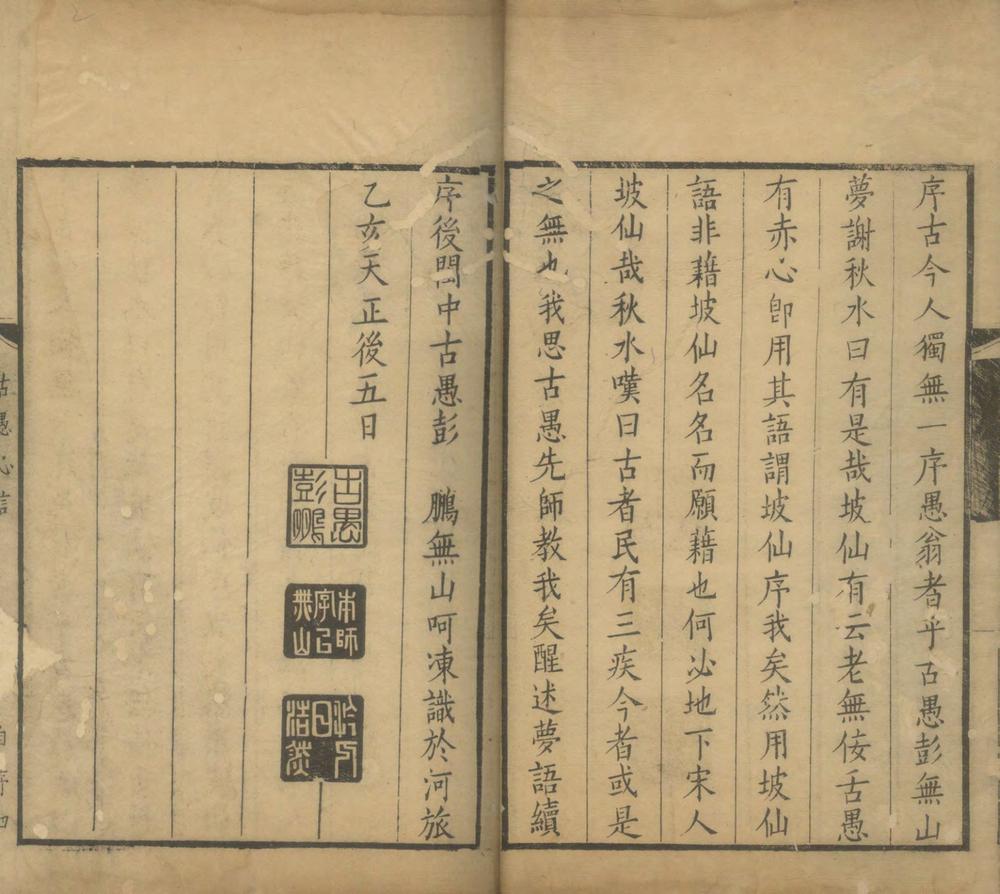 序古今人獨無一序愚翁者乎古愚彭無山
夢謝秋水曰有是哉坡仙有云老無侫舌愚
有赤心卽用其語謂坡仙序我矣然用坡仙
語非藉坡仙名名而願藉也何必地下宋人
坡仙哉秋水嘆曰古者民有三疾今者或是
之無也我思古愚先師教我矣醒述夢語續
序後閩中古愚彭 鵬無山呵凍識於河旅
乙亥天正後五日
古愚彭鵬
本師字已無山
日浩然
古愚心言
自序四